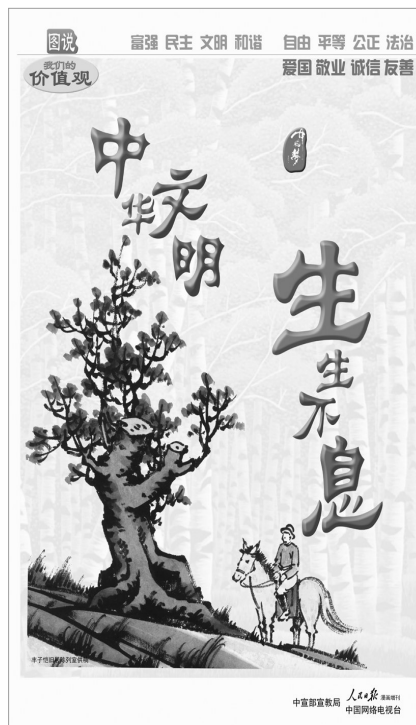 图说
我们的
价值观
富强 民主 文明 和谐 自由 平等 公正 法治
爱国 敬业 诚信 友善
中国梦
中华文明
生生不息
丰子恺旧居陈列室供稿
中宣部宣教局
人民日报 漫画增刊
中国网络电视台